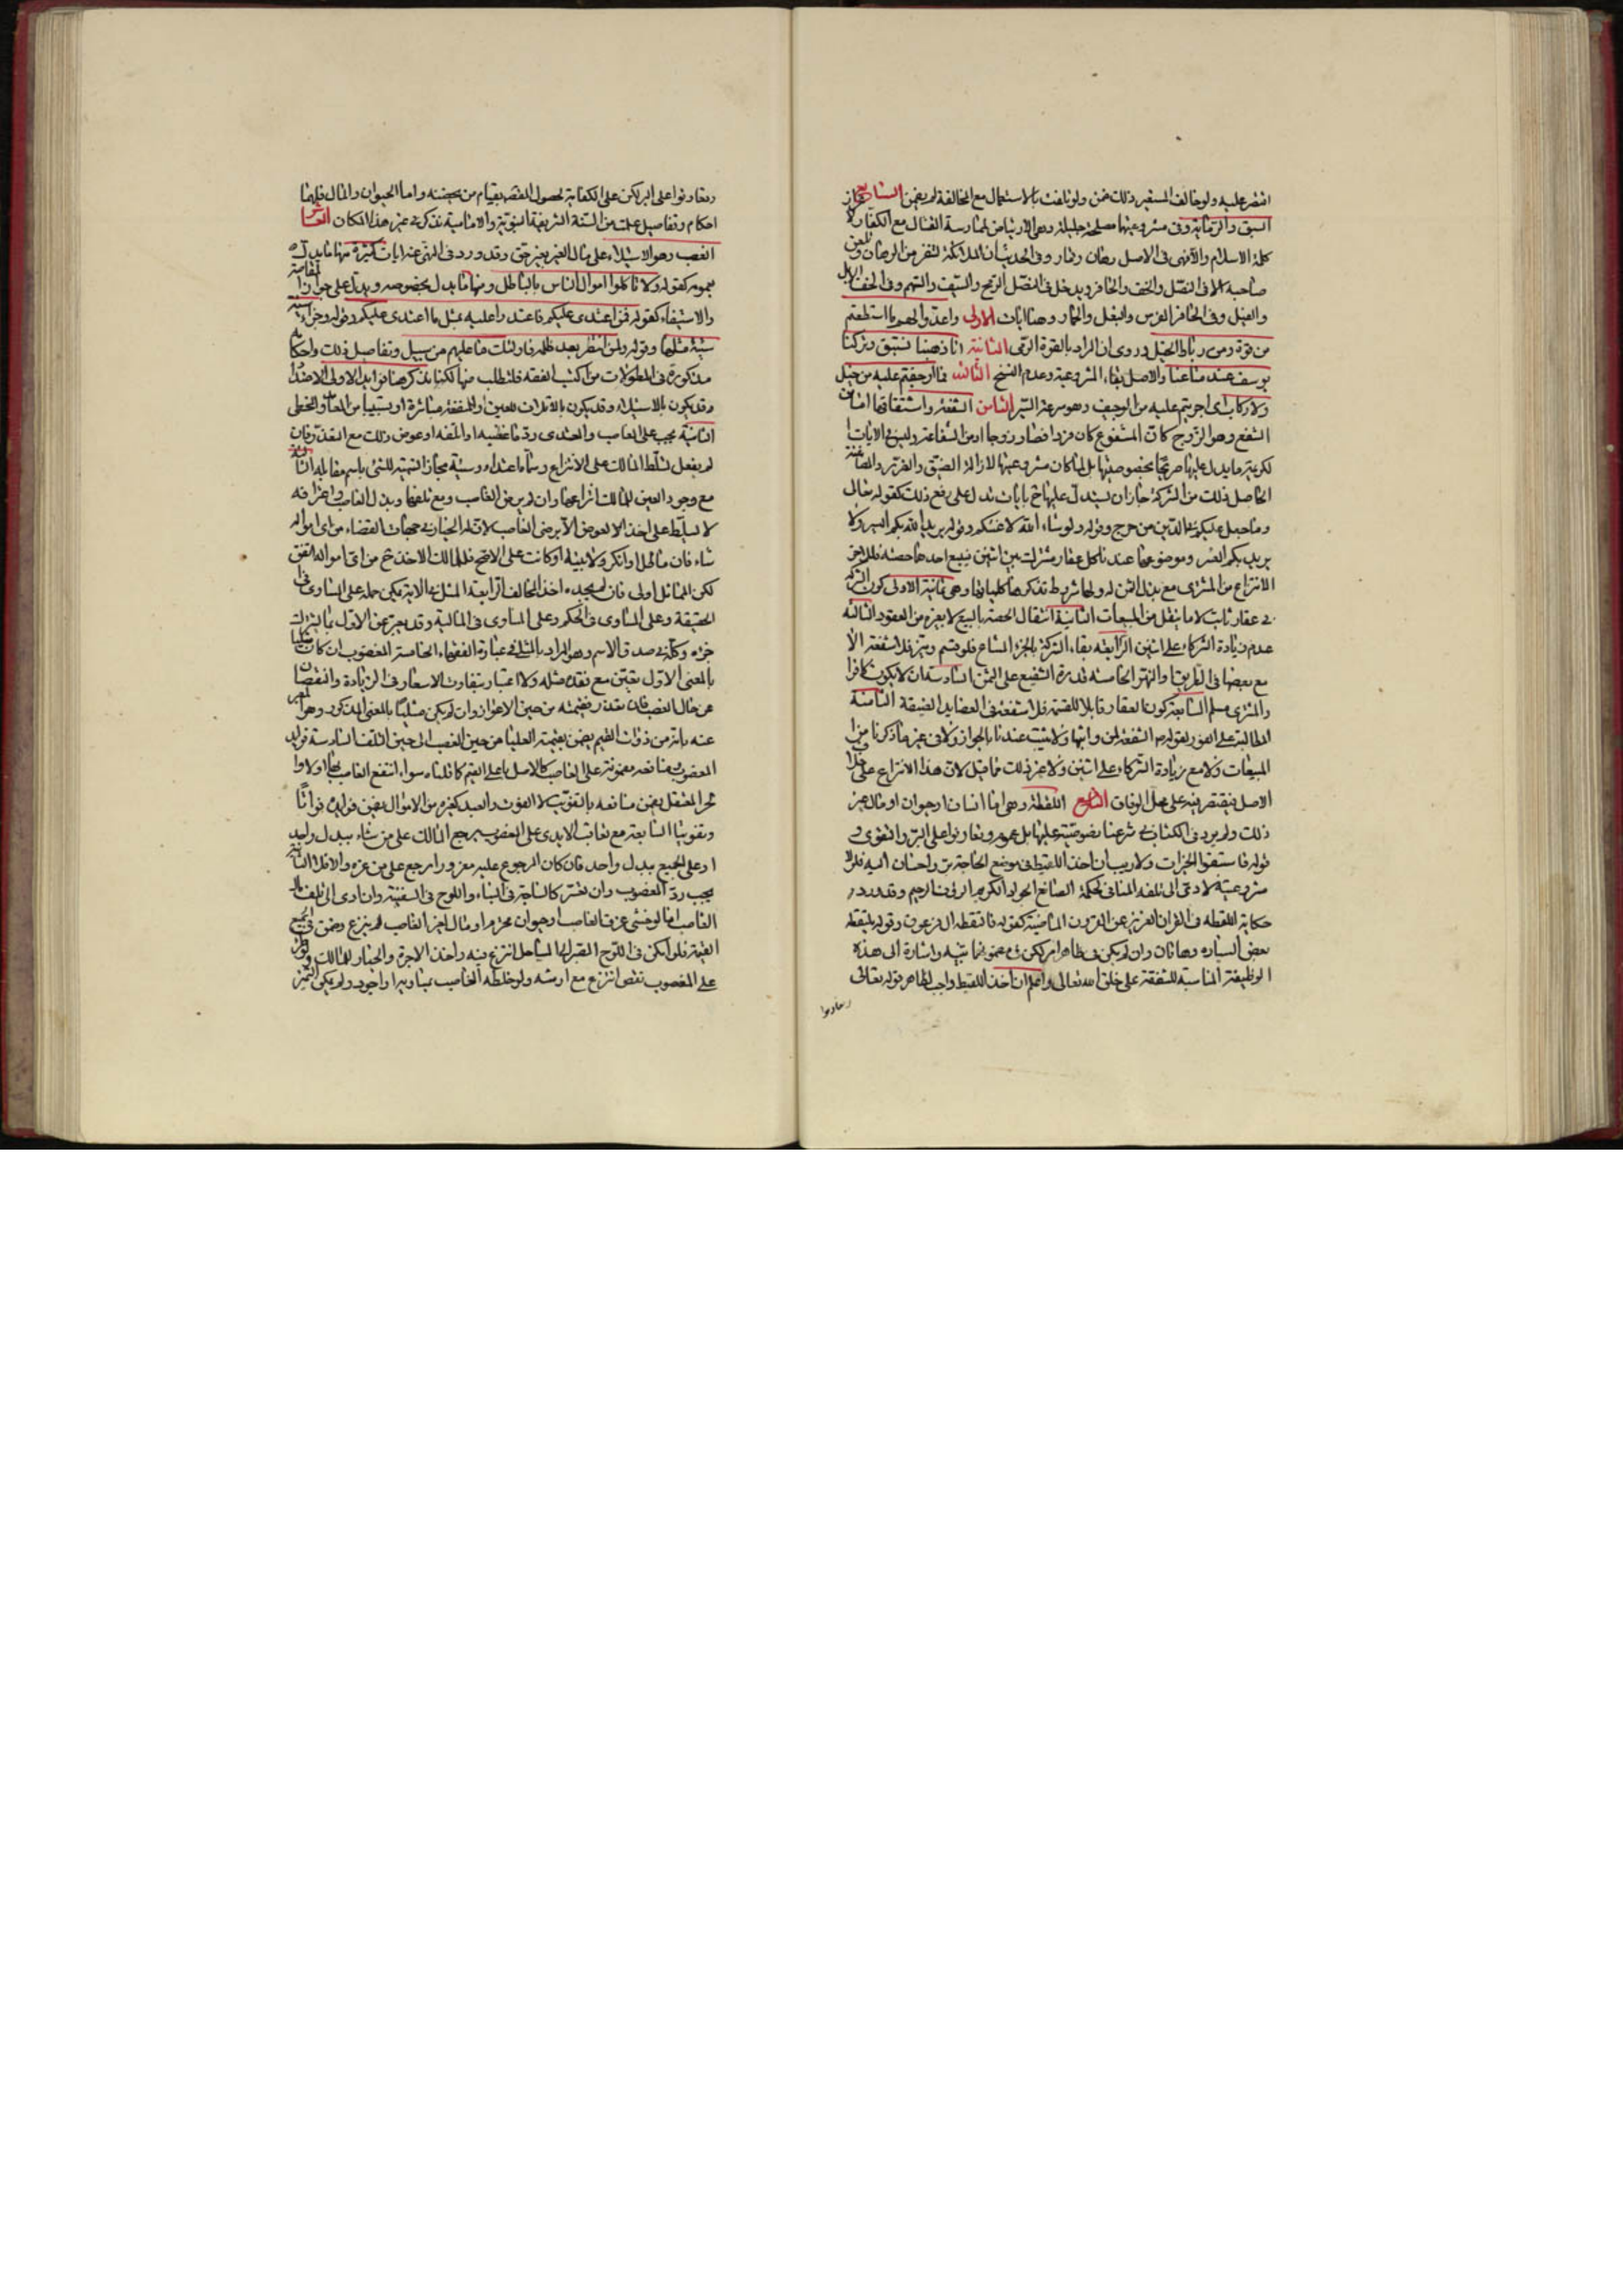 اقتصر عليه ولو خالف المستعير ذلك ضمن ولو تلفت بالاستعمال مع المخالفة لم يضمن السابع
السبق والرماية وفى مشروعيتها مصلحة جليلة وهى الارتياض لممارسة القتال مع الكفار
كلمة الاسلام والا فهى فى الاصل رهان وقمار وفى الحديث ان الملائكة لتنفر من الرهان وتلعن
صاحبه الا فى النصل والخف والحافر ويدخل فى النصل الرمح والسيف والسهم وفى الخف الابل
والفيل وفى الحافر الفرس والبغل والحمار وهنا ايات الاولى واعدوا لهم ما استطعتم
من قوة ومن رباط الخيل وروى ان المراد بالقوة الرمى الثانية انا ذهبنا نستبق وتركنا
يوسف عند متاعنا والاصل بقاء المشروعية وعدم النسخ الثالثة فما اوجفتم عليه من خيل
ولا ركاب اى اجريتم عليه من الوجيف وهو سرعة السير الثامن الشفعة واشتقاقها اما من
الشفع وهو الزوج كان المشفوع كان فردا فصار زوجا او من الشفاعة وليس فى الايات
الكريمة ما يدل عليها صريحا بخصوصيتها بل لما كان مشروعيتها لازالة الضيق والضرر والمضايقة
الحاصل ذلك من الشركة جاز ان يستدل عليها ح بايات تدل على رفع ذلك كقوله تعالى
وما جعل عليكم فى الدين من حرج وقوله ولو شاء الله لاعنتكم وقوله يريد الله بكم اليسر ولا
يريد بكم العسر وموضوعها عندنا كل عقار مشترك بين اثنين فيبيع احدهما حصته فللاخر
الانتزاع من المشترى مع بذل الثمن له ولها شروط تذكرها كلياتها وهى ثمانية الاولى كون
فى عقار ثابت لا ما ينقل من المبيعات الثانية انتقال الحصة بالبيع لا بغيره من العقود الثالثة
عدم زيادة الشركاء على اثنين الرابعة بقاء الشركة بالجزء المشاع فلو قسم وميز فلا شفعة الا
مع بعضها فى الطريق او النهر الخامسة قدرة الشفيع على الثمن السادسة ان لا يكون كافرا
والمشترى مسلم السابعة كون العقار قابلا للقسمة فلا شفعة فى العضايد الضيقة الثامنة
المطالبة على الفور لقوله ص الشفعة لمن واثبها ولا يثبت عندنا بالجوار ولا فى غير ما ذكرنا من
المبيعات ولا مع زيادة الشركاء على اثنين ولا غير ذلك مما قيل لان هذا الانتزاع على خلاف
الاصل فيقتصر فيه على محل الوفاق التاسع اللقطة وهى اما انسان او حيوان او مال غير
ذلك ولم يرد فى الكتاب فى شرعنا نصوصية عليها بل عموم وتعاونوا على البر والتقوى و
قوله فاستبقوا الخيرات ولا ريب ان اخذ اللقيط فى موضع الحاجة بر واحسان اليه فلولا
مشروعيته لادى الى تلفه المنافى لحكمة الصانع الجواد الكريم الرؤف الرحيم وقد ورد
حكاية اللقطة فى القران العزيز عن القرون الماضية كقوله فالتقطه ال فرعون وقوله يلتقطه
بعض السيارة وهاتان وان لم يكن فى ظاهر امر لكن فى مضمونهما تنبيه واشارة الى هذه
الوظيفة المناسبة للشفقة على خلق الله تعالى واعلم ان اخذ اللقيط واجب لظاهر قوله تعالى
وتعاونوا
وتعاونوا على البر لكن على الكفاية لحصول الغرض بقيام من يحضنه واما الحيوان والمال فلهما
احكام وتفاصيل علمت من السنة الشريفة النبوية والامامية تذكر فى غير هذا المكان العاشر
الغصب وهو الاستيلاء على مال الغير بغير حق وقد ورد فى النهى عنه ايات كثيرة منها ما يدل
بعمومه كقوله ولا تاكلوا اموال الناس بالباطل ومنها ما يدل بخصوصه ويدل على جواز المقاصة
والاستيفاء كقوله فمن اعتدى عليكم فاعتدوا عليه بمثل ما اعتدى عليكم وقوله وجزاء سيئة
سيئة مثلها وقوله ولمن انتصر بعد ظلمه فاولئك ما عليهم من سبيل وتفاصيل ذلك واحكامه
مذكورة فى المطولات من كتب الفقه فلتطلب منها لكنا نذكر هنا فوايد الاولى الاعتداء
قد يكون بالاستيلاء وقد يكون بالاتلاف للعين او المنفعة مباشرة او تسبيبا من العامد والمخطى
الثانية يجب على الغاصب والمعتدى رد ما غصبه او اتلفه او عوض ذلك مع التعذر فان
لم يفعل تسلط المالك على الانتزاع وسماه اعتداء وسيئة مجاز التسمية للشئ باسم مقابله الثالثة
مع وجود العين للمالك انتزاعها وان لم يرض الغاصب ومع تلفها وبذل الغاصب واعترافه
لا تسلط على اخذ الا لعوض الا برضى الغاصب لان له الخيار فى جهات القضاء من اى امواله
شاء فان ماطل او انكر ولا بينة او كانت على الاصح فللمالك الاخذ ح من اى امواله اتفق
لكن المماثل اولى فان لم يجده اخذ المخالف الرابعة المثل فى الاية يمكن حمله على المساوى فى
الحقيقة وعلى المساوى فى الحكم وعلى المساوى فى المالية وقد يعبر عن الاول بما يشترك
جزءه وكله فى صدق الاسم وهو المراد بالمثلى فى عبارة الفقهاء الخامسة المغصوب ان كان مثليا
بالمعنى الاول تعين مع فقده مثله ولا اعتبار بتفاوت الاسعار فى الزيادة والنقصان
عن حال الغصب فان تعذر فقيمته من حين الاعواز وان لم يكن مثليا بالمعنى المذكور وهو المعبر
عنه بانه من ذوات القيم يضمن بقيمته العليا من حين الغصب الى حين التلف السادسة فوايد
المغصوب ومنافعه مضمونة على الغاصب كالاصل باعلى القيم كما قلناه سواء انتفع الغاصب بها او لا
ويقويها السابعة مع تعاقب الايدى على المغصوب يرجع المالك على من شاء ببدل واحد
او على الجميع ببدل واحد فان كان المرجوع عليه مغرورا رجع على من غره والا فلا الثامنة
يجب رد المغصوب وان تعسر كالساجة فى البناء واللوح فى السفينة وان ادى الى تلف مال
الغاصب اما لو خشى غرق الغاصب او حيوان محترم او مال لغير الغاصب لم ينزع وضمن فى الجميع
القيمة فلو امكن فى اللوح المقير لها الساحل انتزع فيه واخذ الاجرة والخيار للمالك ولو
على المغصوب نقص انتزع مع ارشه ولو خلطه الغاصب بمساويه او اجود ولم يمكن التميز